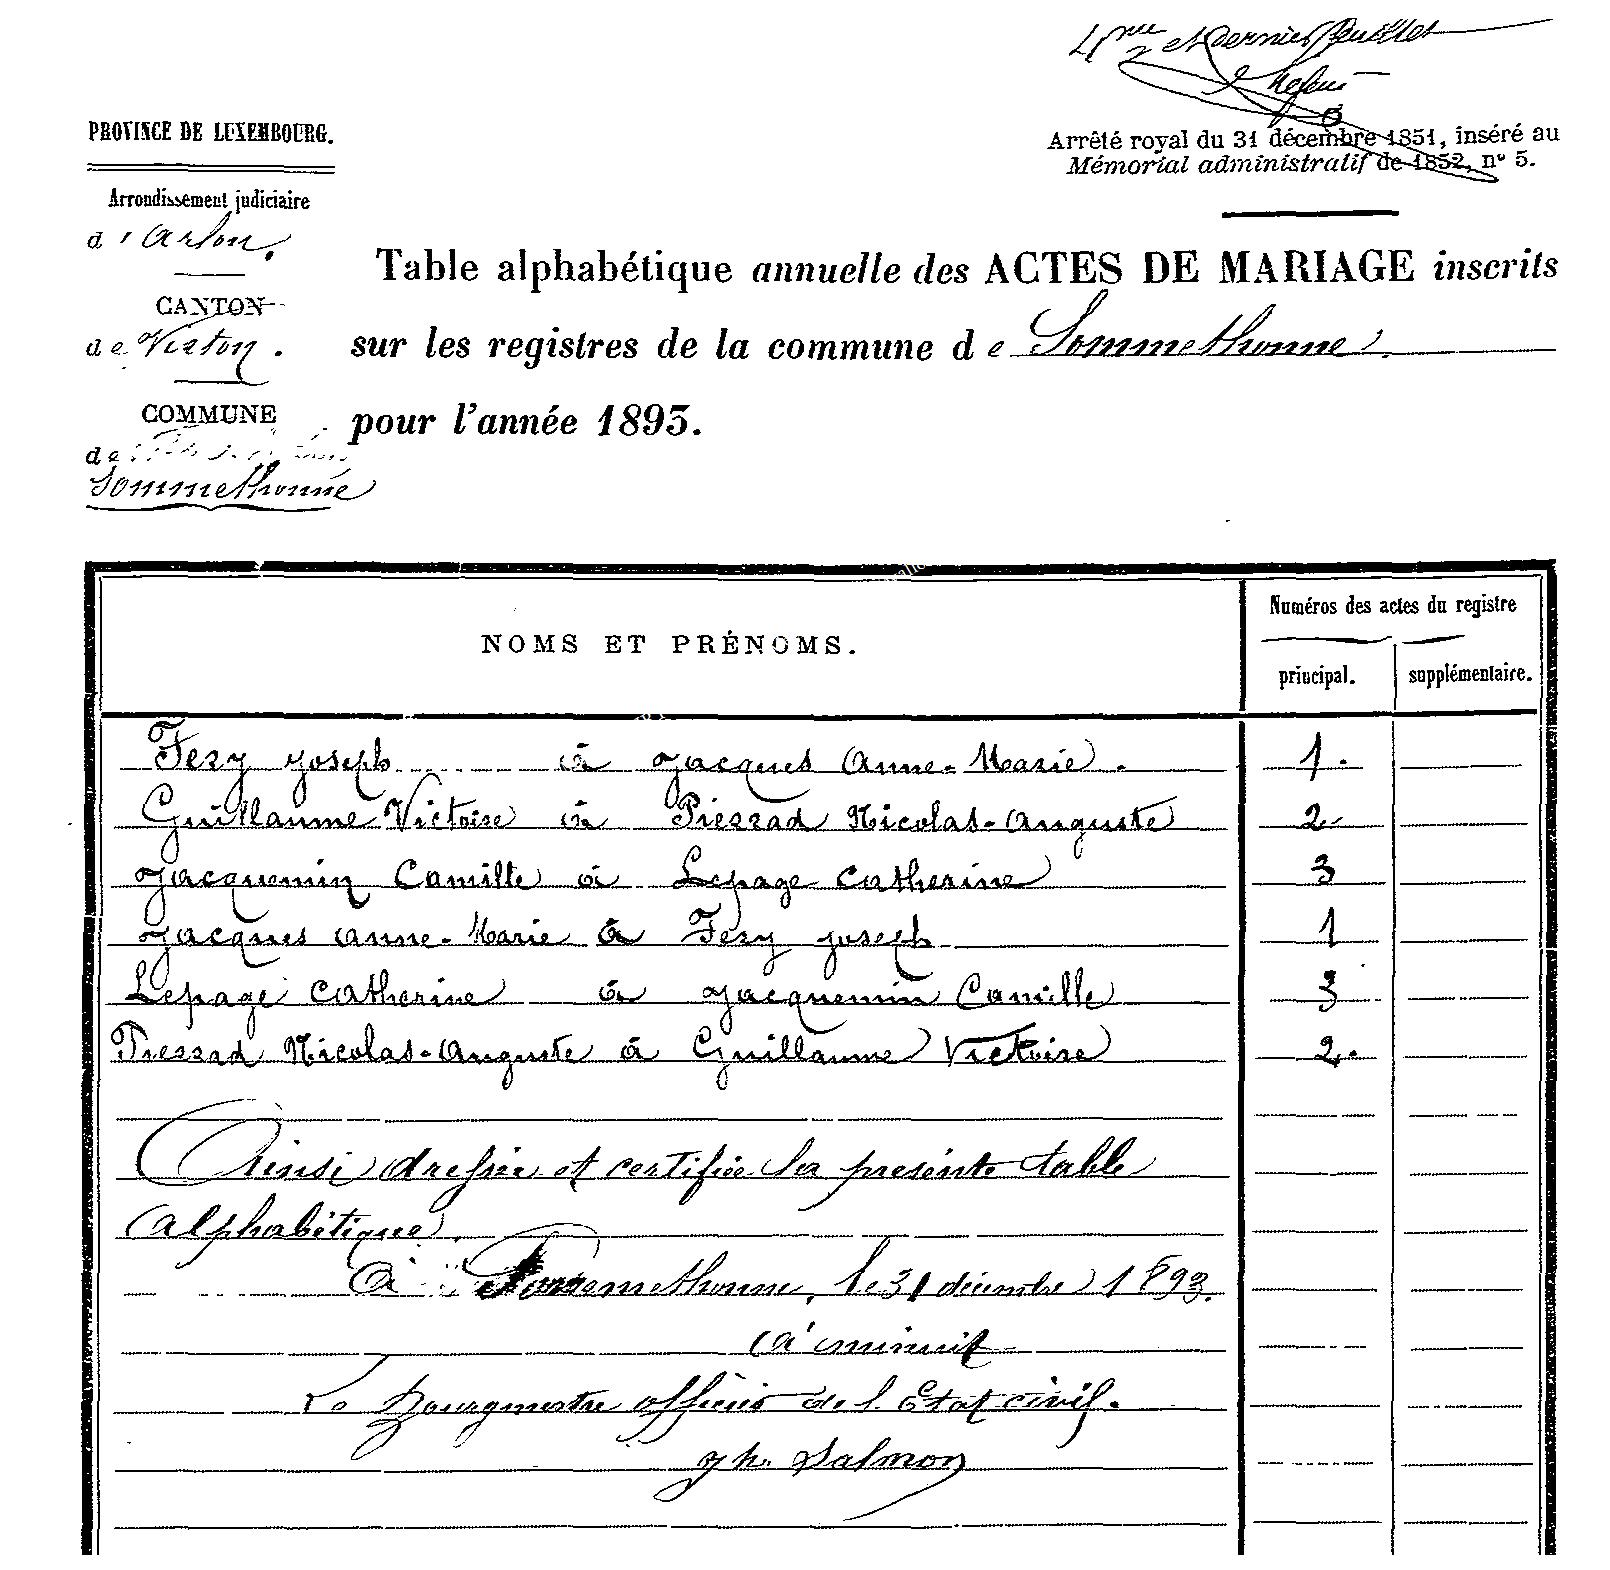 4me et dernier feuillet
PROVINCE DE LUXEMBOURG.
Arrêté royal du 31 décembre 1851, inséré au
Mémorial administratif de 1852, n° 5.
Arrondissement judiciaire
d'Arlon.
CANTON
de Virton.
COMMUNE
de
Sommethonne
Table alphabétique annuelle des ACTES DE MARIAGE inscrits
sur les registres de la commune de Sommethonne
pour l'année 1893.
NOMS ET PRÉNOMS.
Numéros des actes du registre
principal. supplémentaire.
Fery Joseph à Jacques Anne-Marie. 1.
Guillaume Victoire à Pierrad Nicolas-Auguste 2
Jacquemin Camille à Lepage Catherine 3
Jacques Anne-Marie à Fery Joseph 1
Lepage Catherine à Jacquemin Camille 3
Pierrad Nicolas-Auguste à Guillaume Victoire 2.
Ainsi dressée et certifiée la présente table
alphabétique.
À Sommethonne, le 31 décembre 1893.
à minuit
Le Bourgmestre officier de l'Etat civil.
Jh. Salmon